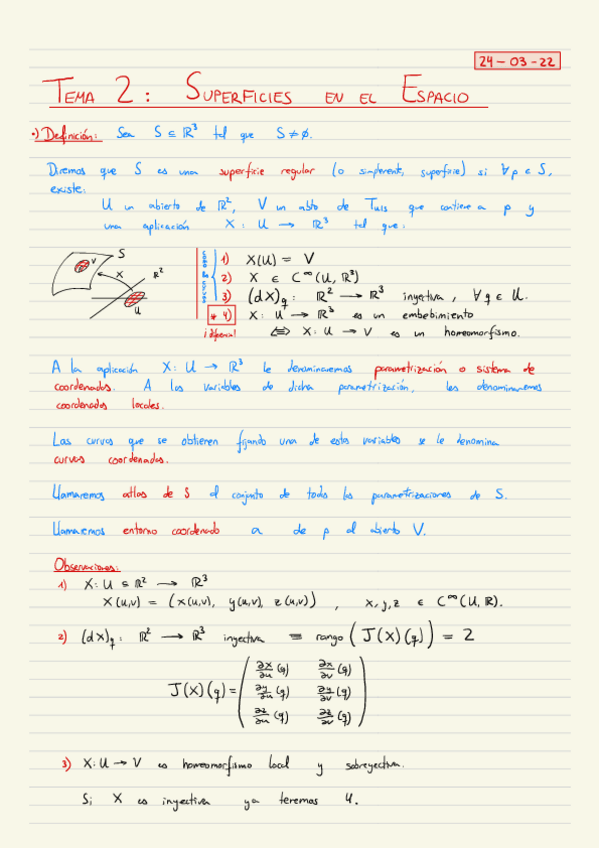 24-03-22
TEMA 2: SUPERFICIES EN EL ESPACIO
•) Definición: Sea S ⊆ ℝ³ tal que S ≠ ∅.
Diremos que S es una superficie regular (o simplemente, superficie) si ∀p ∈ S,
existe:
U un abierto de ℝ², V un abto de T_u|S que contiene a p y
una aplicación X: U → ℝ³ tal que:
S
V
X
ℝ²
U
1) X(U) = V
2) X ∈ C^∞(U, ℝ³)
3) (dX)_q: ℝ² → ℝ³ inyectiva, ∀q ∈ U.
* 4) X: U → ℝ³ es un embebimiento
¡diferencia! ⟺ X: U → V es un homeomorfismo.
A la aplicación X: U → ℝ³ le denominaremos parametrización o sistema de
coordenadas. A las variables de dicha parametrización, les denominaremos
coordenadas locales.
Las curvas que se obtienen fijando una de estas variables se le denomina
curvas coordenadas.
Llamaremos atlas de S al conjunto de todas las parametrizaciones de S.
Llamaremos entorno coordenado a de p al abierto V.
Observaciones:
1) X: U ⊆ ℝ² → ℝ³
X(u,v) = (x(u,v), y(u,v), z(u,v)) , x, y, z ∈ C^∞(U, ℝ).
2) (dX)_q: ℝ² → ℝ³ inyectiva ≡ rango (J(X)(q)) = 2
J(X)(q) = ( ∂x/∂u (q) ∂x/∂v (q)
∂y/∂u (q) ∂y/∂v (q)
∂z/∂u (q) ∂z/∂v (q) )
3) X: U → V es homeomorfismo local y sobreyectiva.
Si X es inyectiva ya teremos 4.